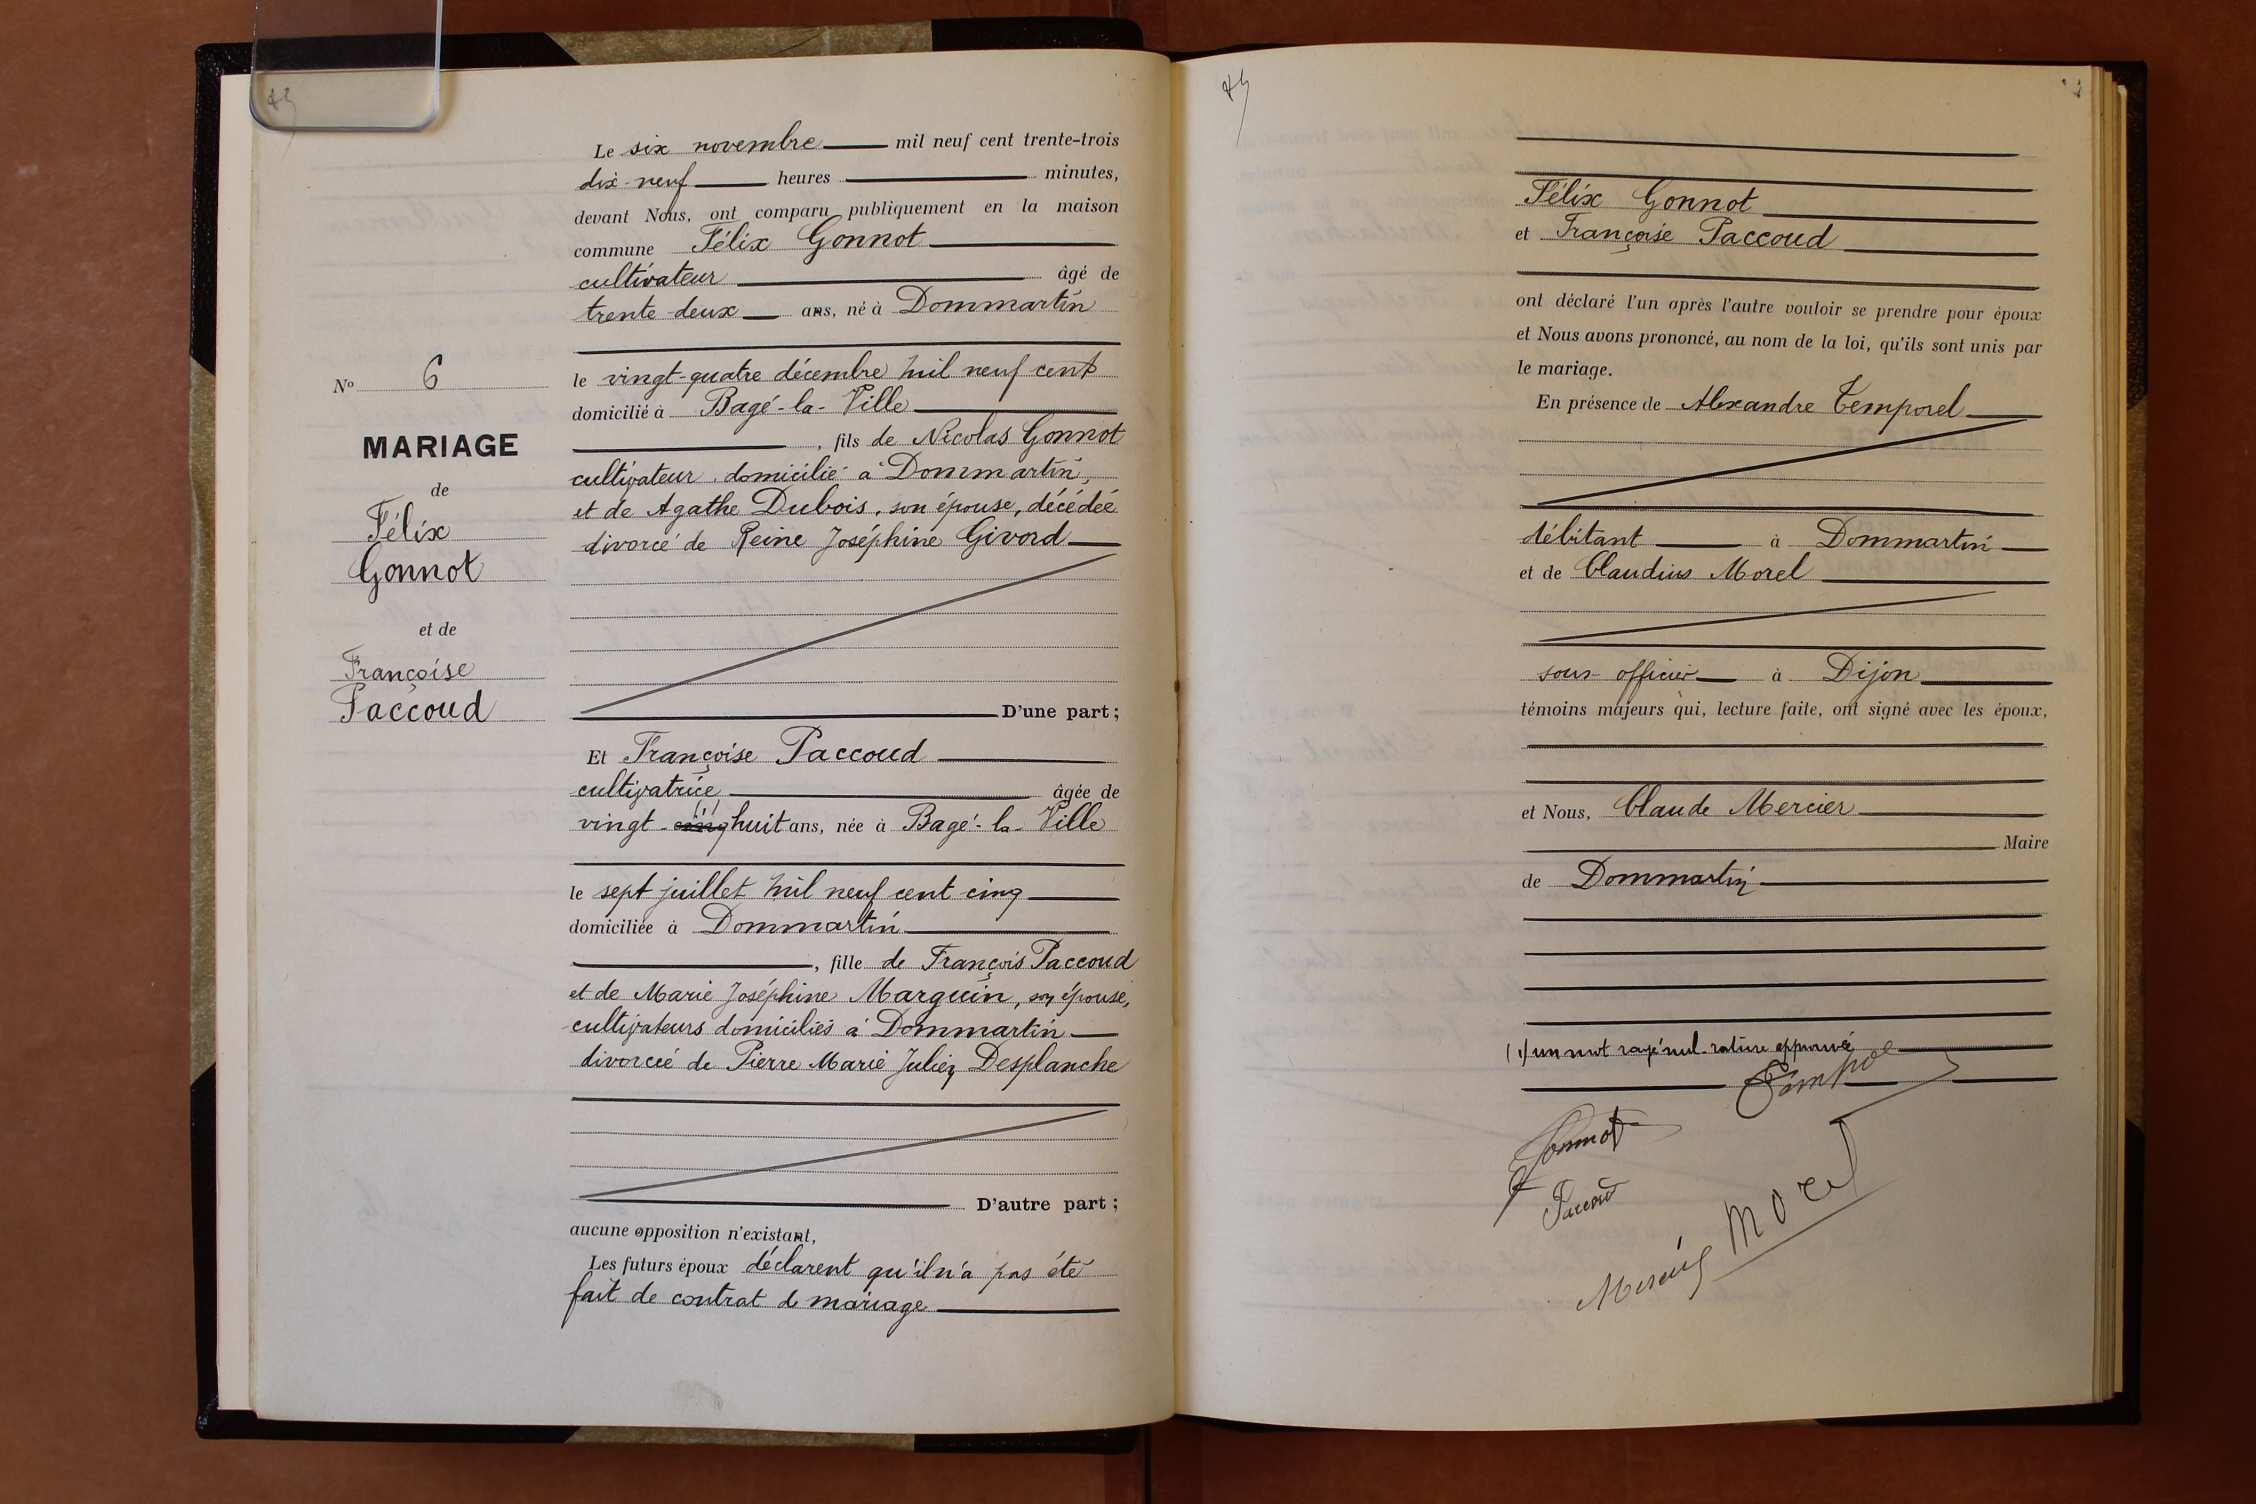 Le six novembre mil neuf cent trente-trois
dix-neuf heures minutes,
devant Nous, ont comparu publiquement en la maison
commune Félix Gonnot
cultivateur âgé de
trente-deux ans, né à Dommartin
le vingt-quatre décembre mil neuf cent
domicilié à Bagé-la-Ville
, fils de Nicolas Gonnot
cultivateur domicilié à Dommartin,
et de Agathe Dubois, son épouse, décédée
divorcé de Reine Joséphine Givord
D'une part;
No 6
MARIAGE
de
Félix
Gonnot
et de
Françoise
Paccoud
Et Françoise Paccoud
cultivatrice âgée de
(1)
vingt-cinq huit ans, née à Bagé-la-Ville
le sept juillet mil neuf cent cinq
domiciliée à Dommartin
, fille de François Paccoud
et de Marie Joséphine Marguin, son épouse,
cultivateurs domiciliés à Dommartin
divorcée de Pierre Marie Julien Desplanche
D'autre part;
aucune opposition n'existant,
Les futurs époux déclarent qu'il n'a pas été
fait de contrat de mariage
Félix Gonnot
et Françoise Paccoud
ont déclaré l'un après l'autre vouloir se prendre pour époux
et Nous avons prononcé, au nom de la loi, qu'ils sont unis par
le mariage.
En présence de Alexandre Temporel
débitant à Dommartin
et de Claudius Morel
sous-officier à Dijon
témoins majeurs qui, lecture faite, ont signé avec les époux,
et Nous, Claude Mercier
Maire
de Dommartin
(1) un mot rayé nul. rature approuvée
Gonnot
Paccoud
Morel